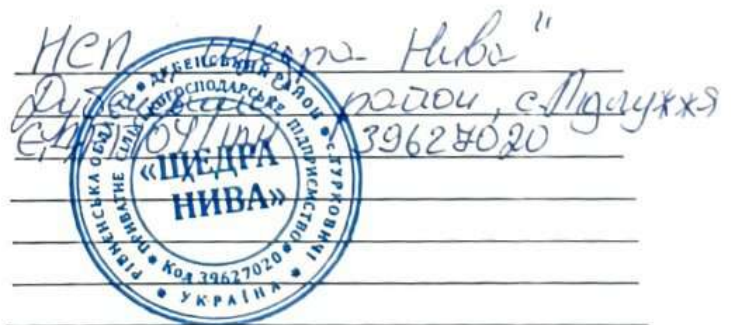 ПСП "Щедра Нива"
Дубенський район, с. Підлужжя
ЄДРПОУ 39627020
РІВНЕНСЬКА ОБЛАСТЬ * ДУБЕНСЬКИЙ РАЙОН * с. ТУРКОВИЧІ
ПРИВАТНЕ СІЛЬСЬКОГОСПОДАРСЬКЕ ПІДПРИЄМСТВО
«ЩЕДРА
НИВА»
Код 39627020
* УКРАЇНА *